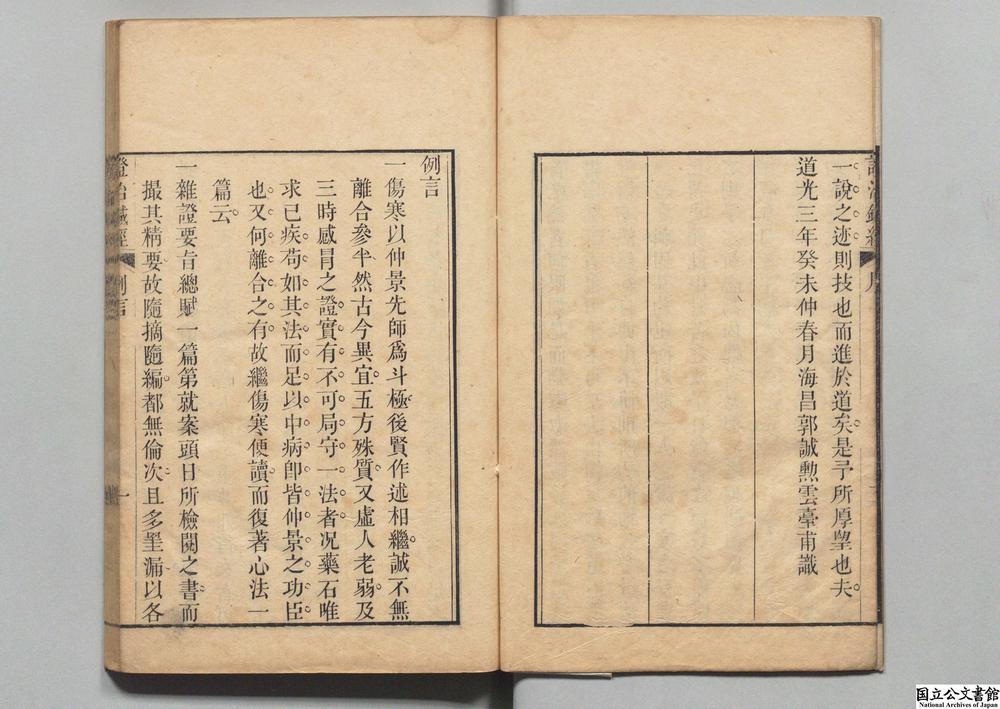 一說之迹則技也而進於道矣是予所厚望也夫
道光三年癸未仲春月海昌郭誠勲雲臺甫識
例言
一傷寒以仲景先師爲斗極後賢作述相繼誠不無
離合參半然古今異宜五方殊質又虛人老弱及
三時感冒之證實有不可局守一法者况藥石唯
求已疾苟如其法而足以中病卽皆仲景之功臣
也又何離合之有故繼傷寒便讀而復著心法一
篇云
一雜證要旨總賦一篇第就案頭日所檢閱之書而
撮其精要故隨摘隨編都無倫次且多罣漏以各
證治鍼經
例言
一
国立公文書館
National Archives of Japan